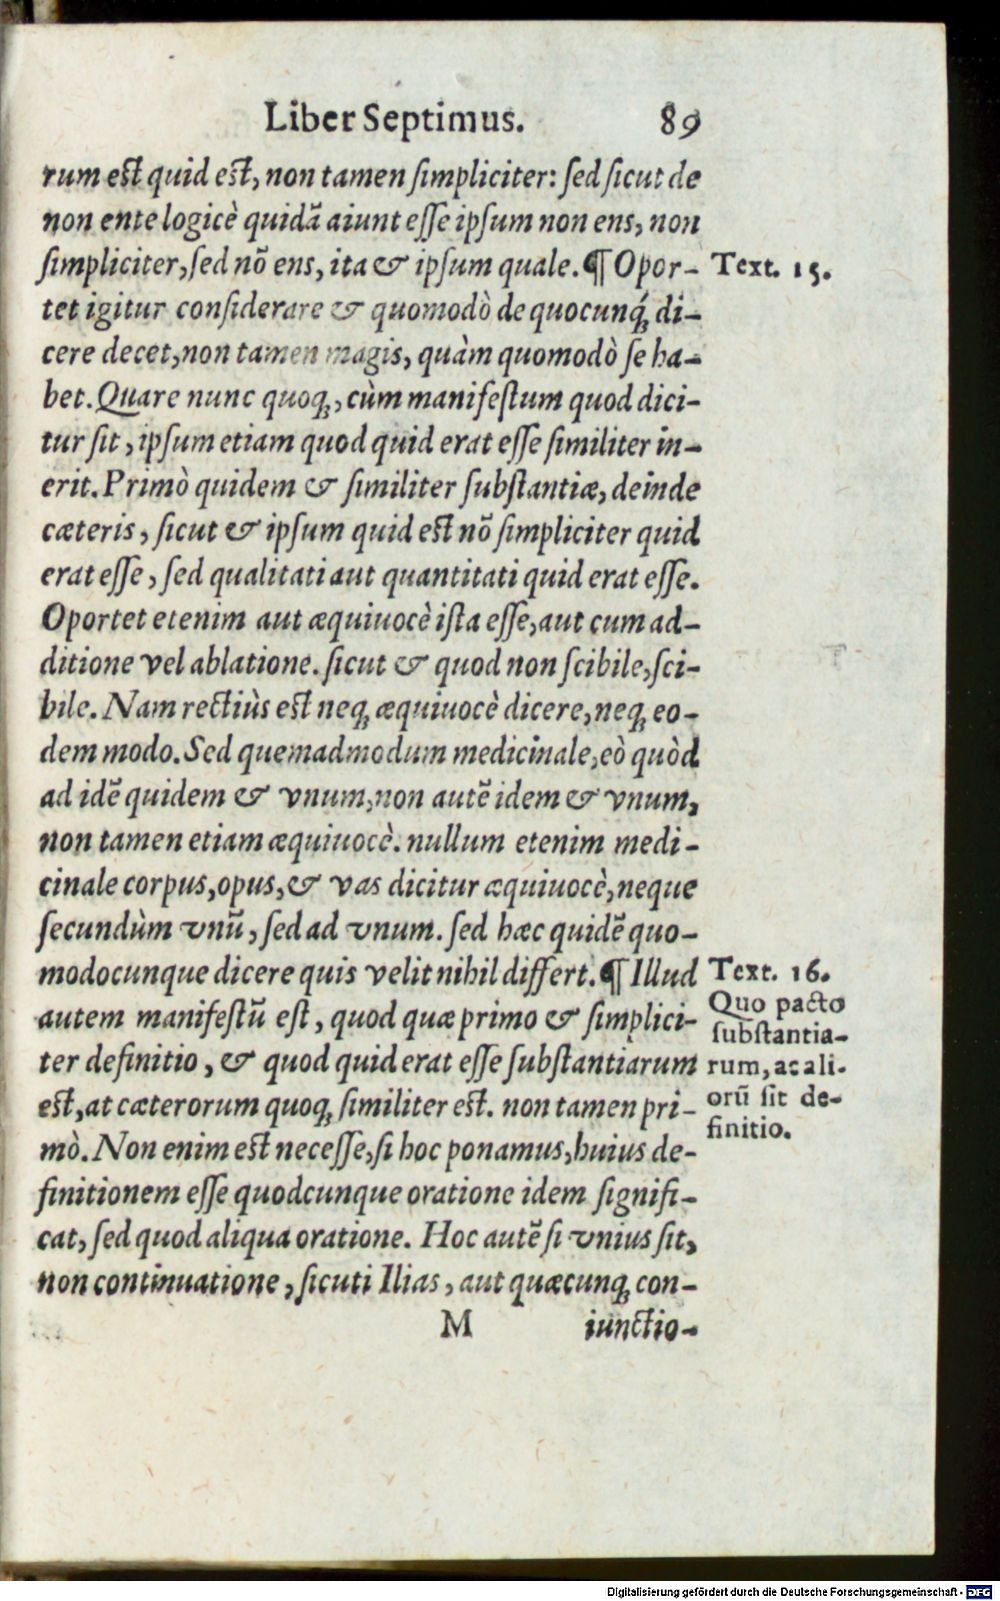 Liber Septimus. 89
rum est quid est, non tamen simpliciter: sed sicut de
non ente logicè quidã aiunt esse ipsum non ens, non
simpliciter, sed nõ ens, ita & ipsum quale. ¶ Opor-
Text. 15.
tet igitur considerare & quomodò de quocunq́; di-
cere decet, non tamen magis, quàm quomodò se ha-
bet. Quare nunc quoq;, cùm manifestum quod dici-
tur sit, ipsum etiam quod quid erat esse similiter in-
erit. Primò quidem & similiter substantiæ, deinde
cæteris, sicut & ipsum quid est nõ simpliciter quid
erat esse, sed qualitati aut quantitati quid erat esse.
Oportet etenim aut æquiuocè ista esse, aut cum ad-
ditione vel ablatione. sicut & quod non scibile, sci-
bile. Nam rectiùs est neq; æquiuocè dicere, neq; eo-
dem modo. Sed quemadmodum medicinale, eò quòd
ad idẽ quidem & vnum, non autẽ idem & vnum,
non tamen etiam æquiuocè. nullum etenim medi-
cinale corpus, opus, & vas dicitur æquiuocè, neque
secundùm vnũ, sed ad vnum. sed hæc quidẽ quo-
modocunque dicere quis velit nihil differt. ¶ Illud
Text. 16.
autem manifestũ est, quod quæ primo & simplici-
ter definitio, & quod quid erat esse substantiarum
est, at cæterorum quoq; similiter est. non tamen pri-
mò. Non enim est necesse, si hoc ponamus, huius de-
finitionem esse quodcunque oratione idem signifi-
cat, sed quod aliqua oratione. Hoc autẽ si vnius sit,
non continuatione, sicuti Ilias, aut quæcunq; con-
Quo pacto
substantia-
rum, ac ali-
orũ sit de-
finitio.
M iunctio-
Digitalisierung gefördert durch die Deutsche Forschungsgemeinschaft - DFG